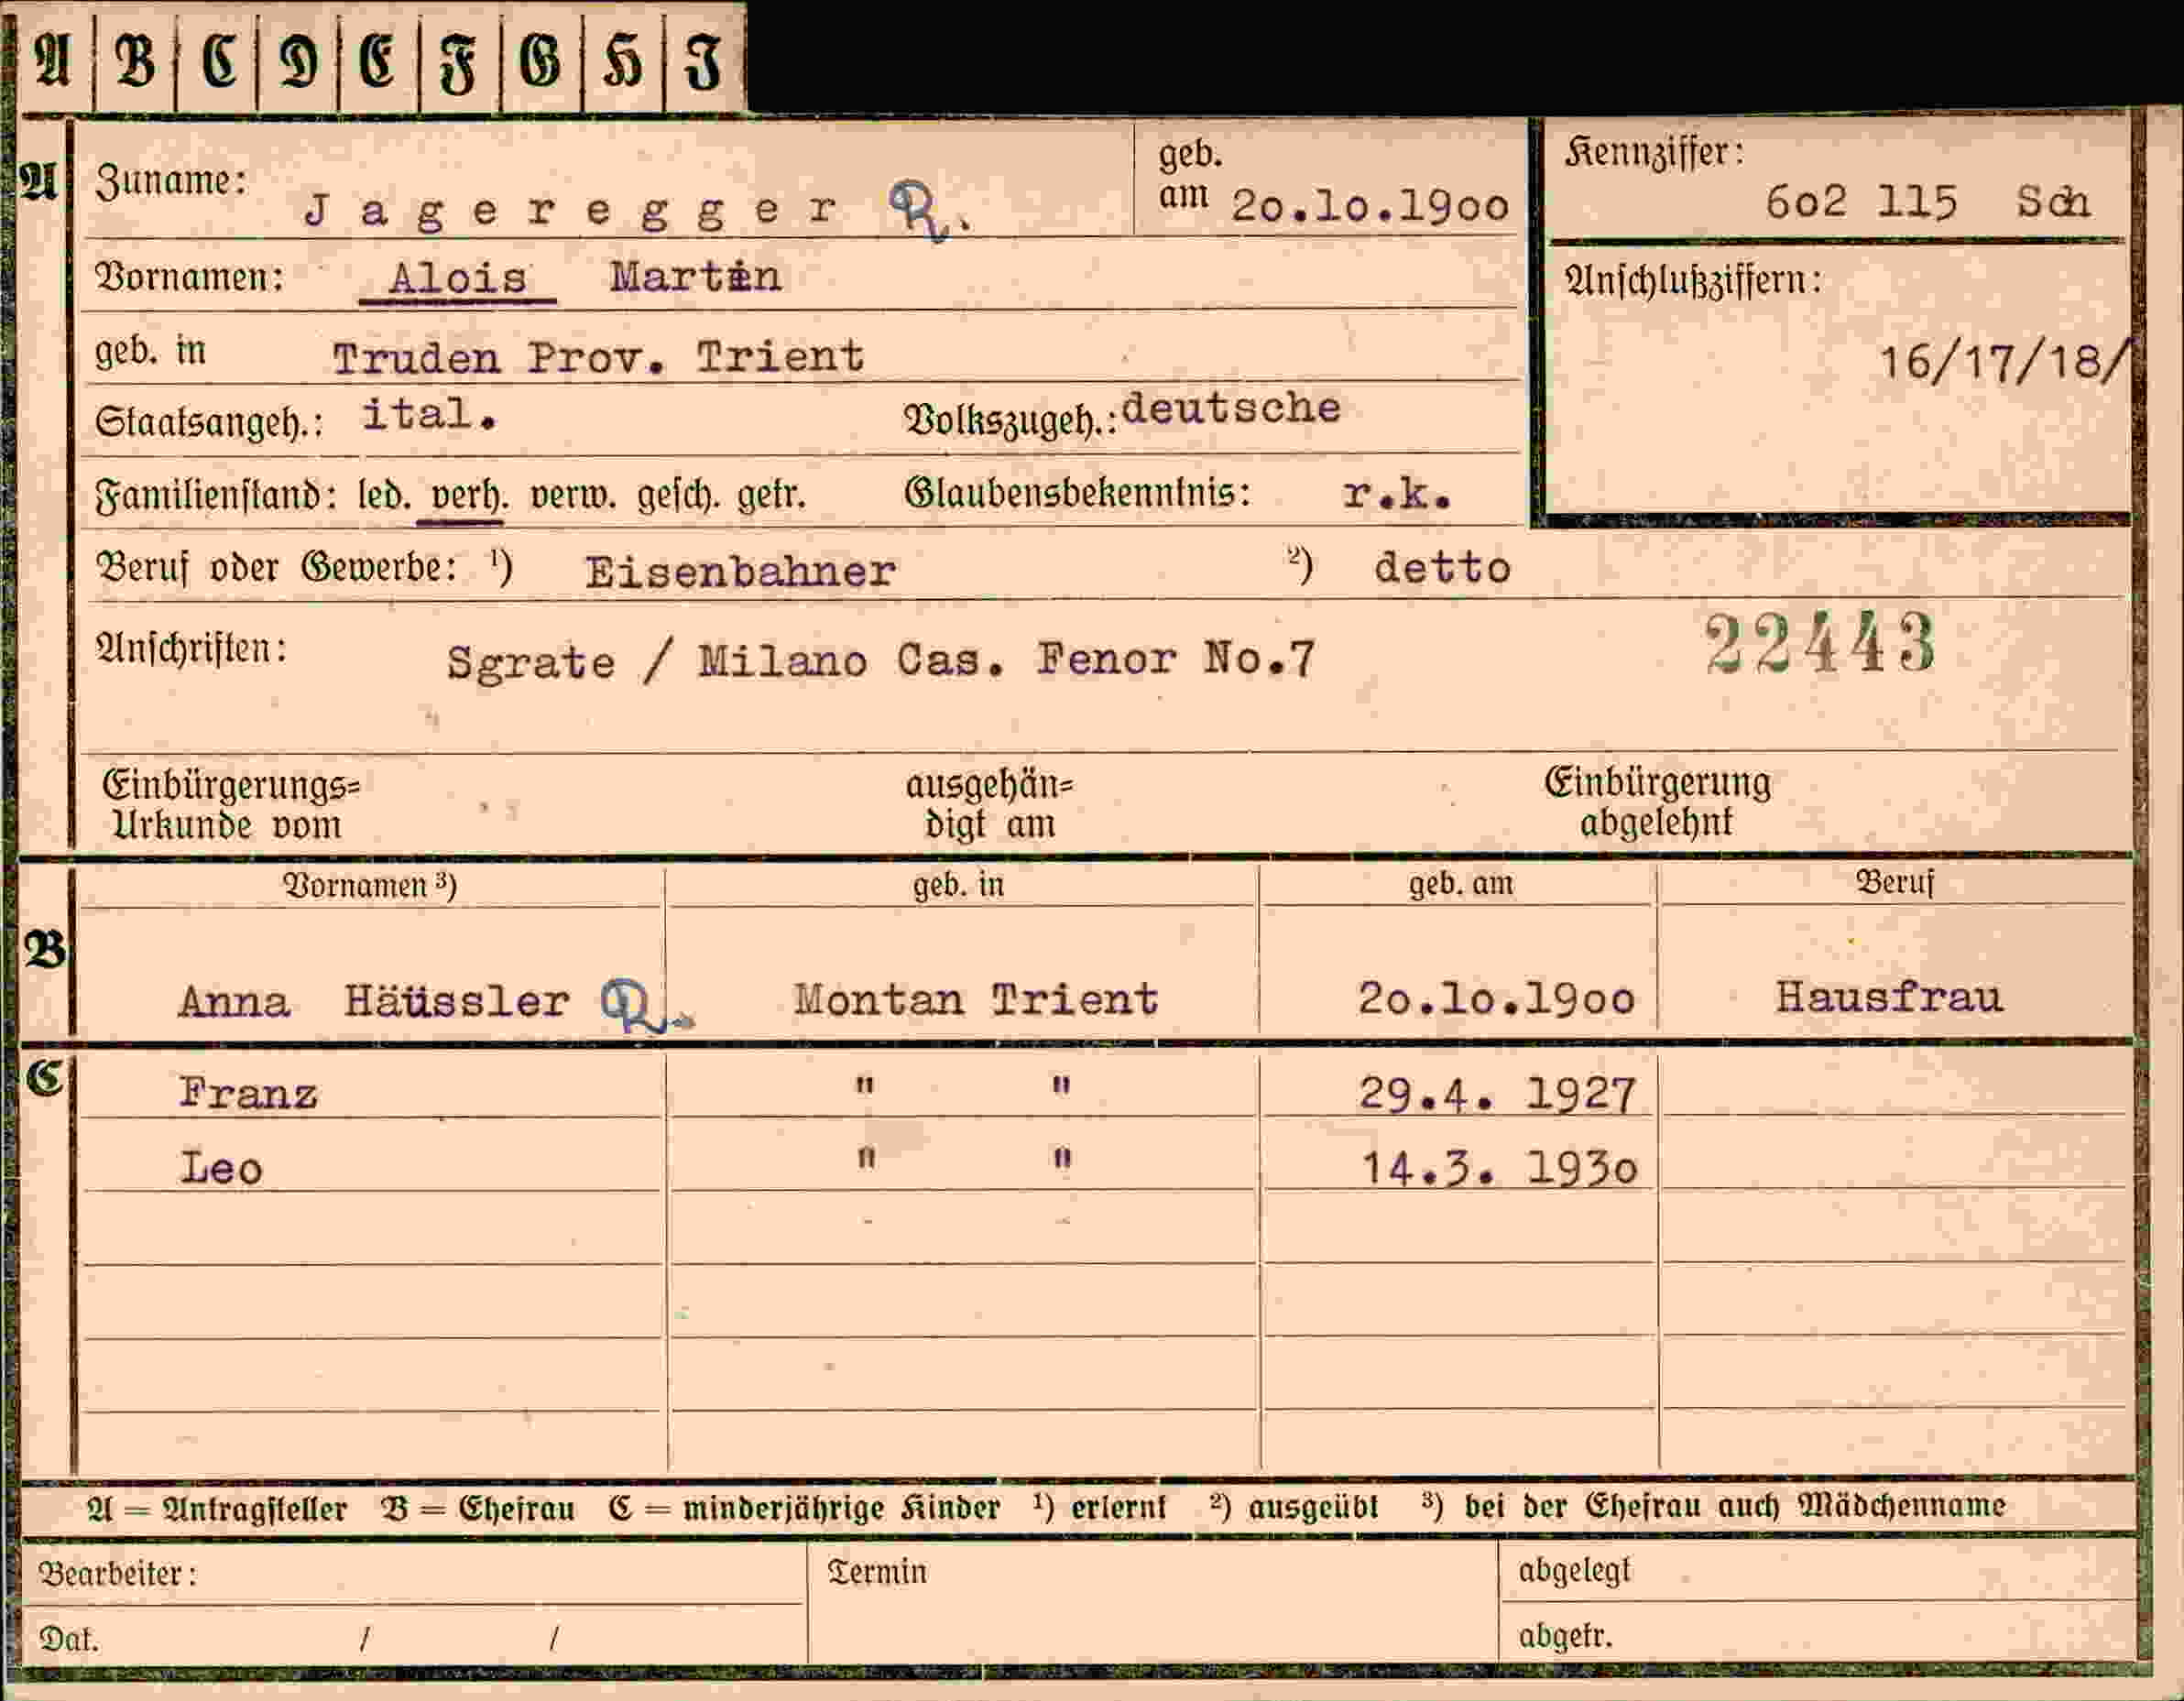 A B C D E F G H I
A Zuname: Jageregger R. geb. am 20.10.1900 Kennziffer: 602 115 Sch
Vornamen: Alois Martin Anschlußziffern:
geb. in Truden Prov. Trient 16/17/18/
Staatsangeh.: ital. Volkszugeh.: deutsche
Familienstand: led. verh. verw. gesch. getr. Glaubensbekenntnis: r.k.
Beruf oder Gewerbe: ¹) Eisenbahner ²) detto
Anschriften: Sgrate / Milano Cas. Fenor No.7 22443
Einbürgerungs= ausgehän= Einbürgerung
Urkunde vom digt am abgelehnt
Vornamen ³) geb. in geb. am Beruf
B Anna Häüssler R. Montan Trient 20.10.1900 Hausfrau
C Franz " " 29.4. 1927
Leo " " 14.3. 1930
A = Antragsteller B = Ehefrau C = minderjährige Kinder ¹) erlernt ²) ausgeübt ³) bei der Ehefrau auch Mädchenname
Bearbeiter: Termin abgelegt
Dat. / / abgetr.